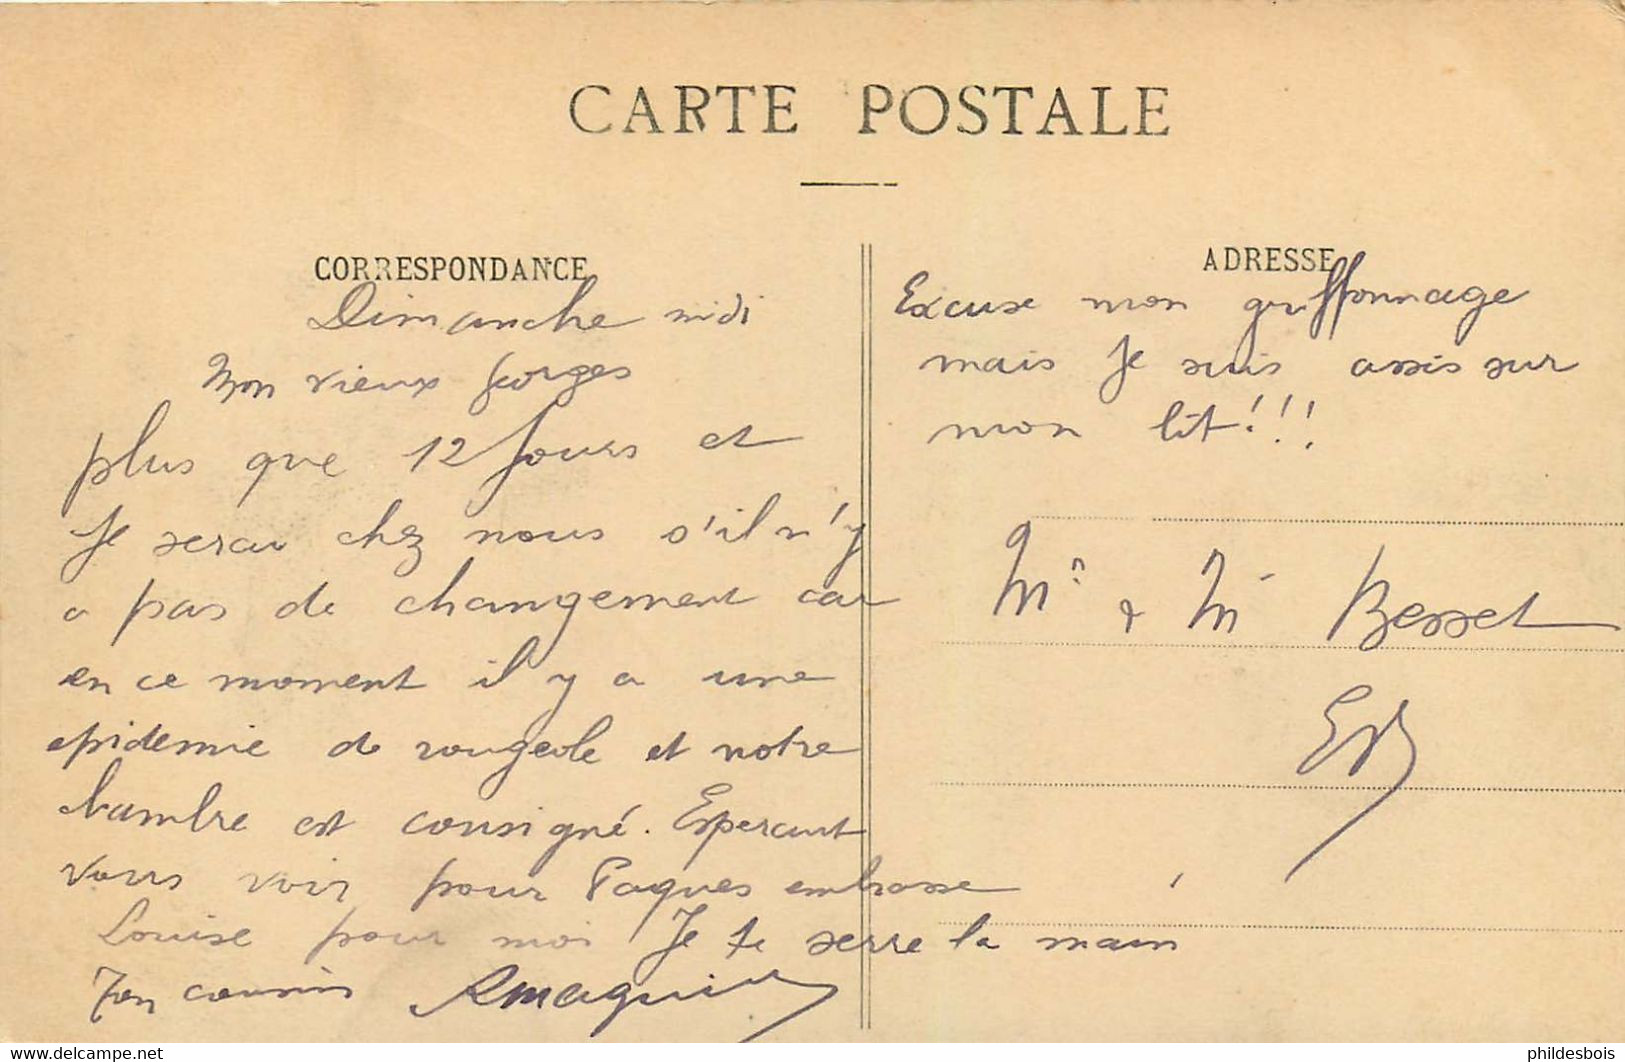 CARTE POSTALE
CORRESPONDANCE
Dimanche midi
Mon vieux Georges
plus que 12 Jours et
Je serai chez nous s'il n'y
a pas de changement car
en ce moment il y a une
epidemie de rougeole et notre
chambre est consigné. Esperant
vous voir pour Paques embrasse
Louise pour moi Je te serre la main
Ton cousin
ADRESSE
Excuse mon griffonnage
mais Je suis assis sur
mon lit!!!
Mr & M Besset
phildesbois
delcampe.net